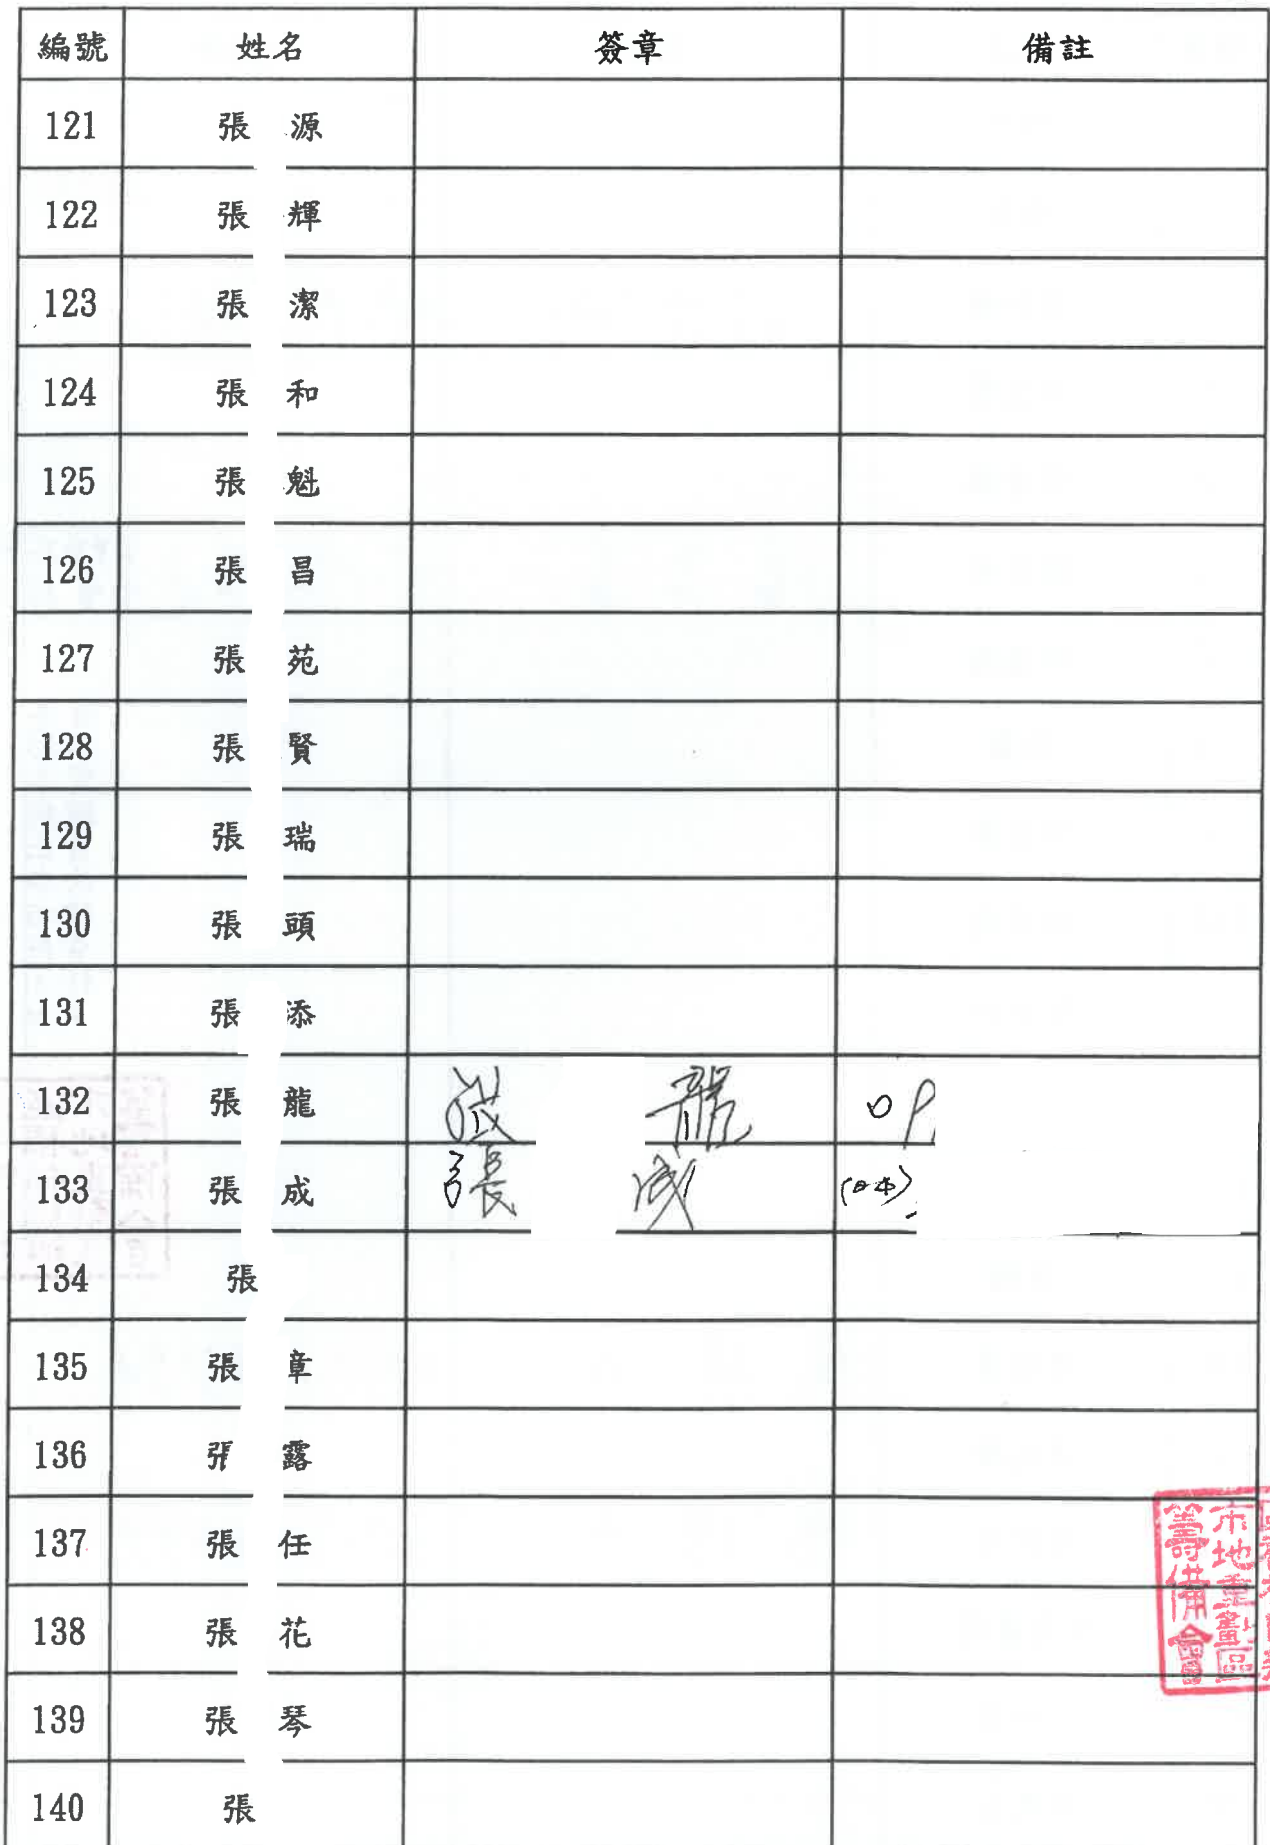 編號 姓名 簽章 備註
121 張 源
122 張 輝
123 張 潔
124 張 和
125 張 魁
126 張 昌
127 張 苑
128 張 賢
129 張 瑞
130 張 頭
131 張 添
132 張 龍 張 龍
133 張 成 張 成 (日本)
134 張
135 張 章
136 張 露
137 張 任
138 張 花
139 張 琴
140 張
市地重劃區
籌備會